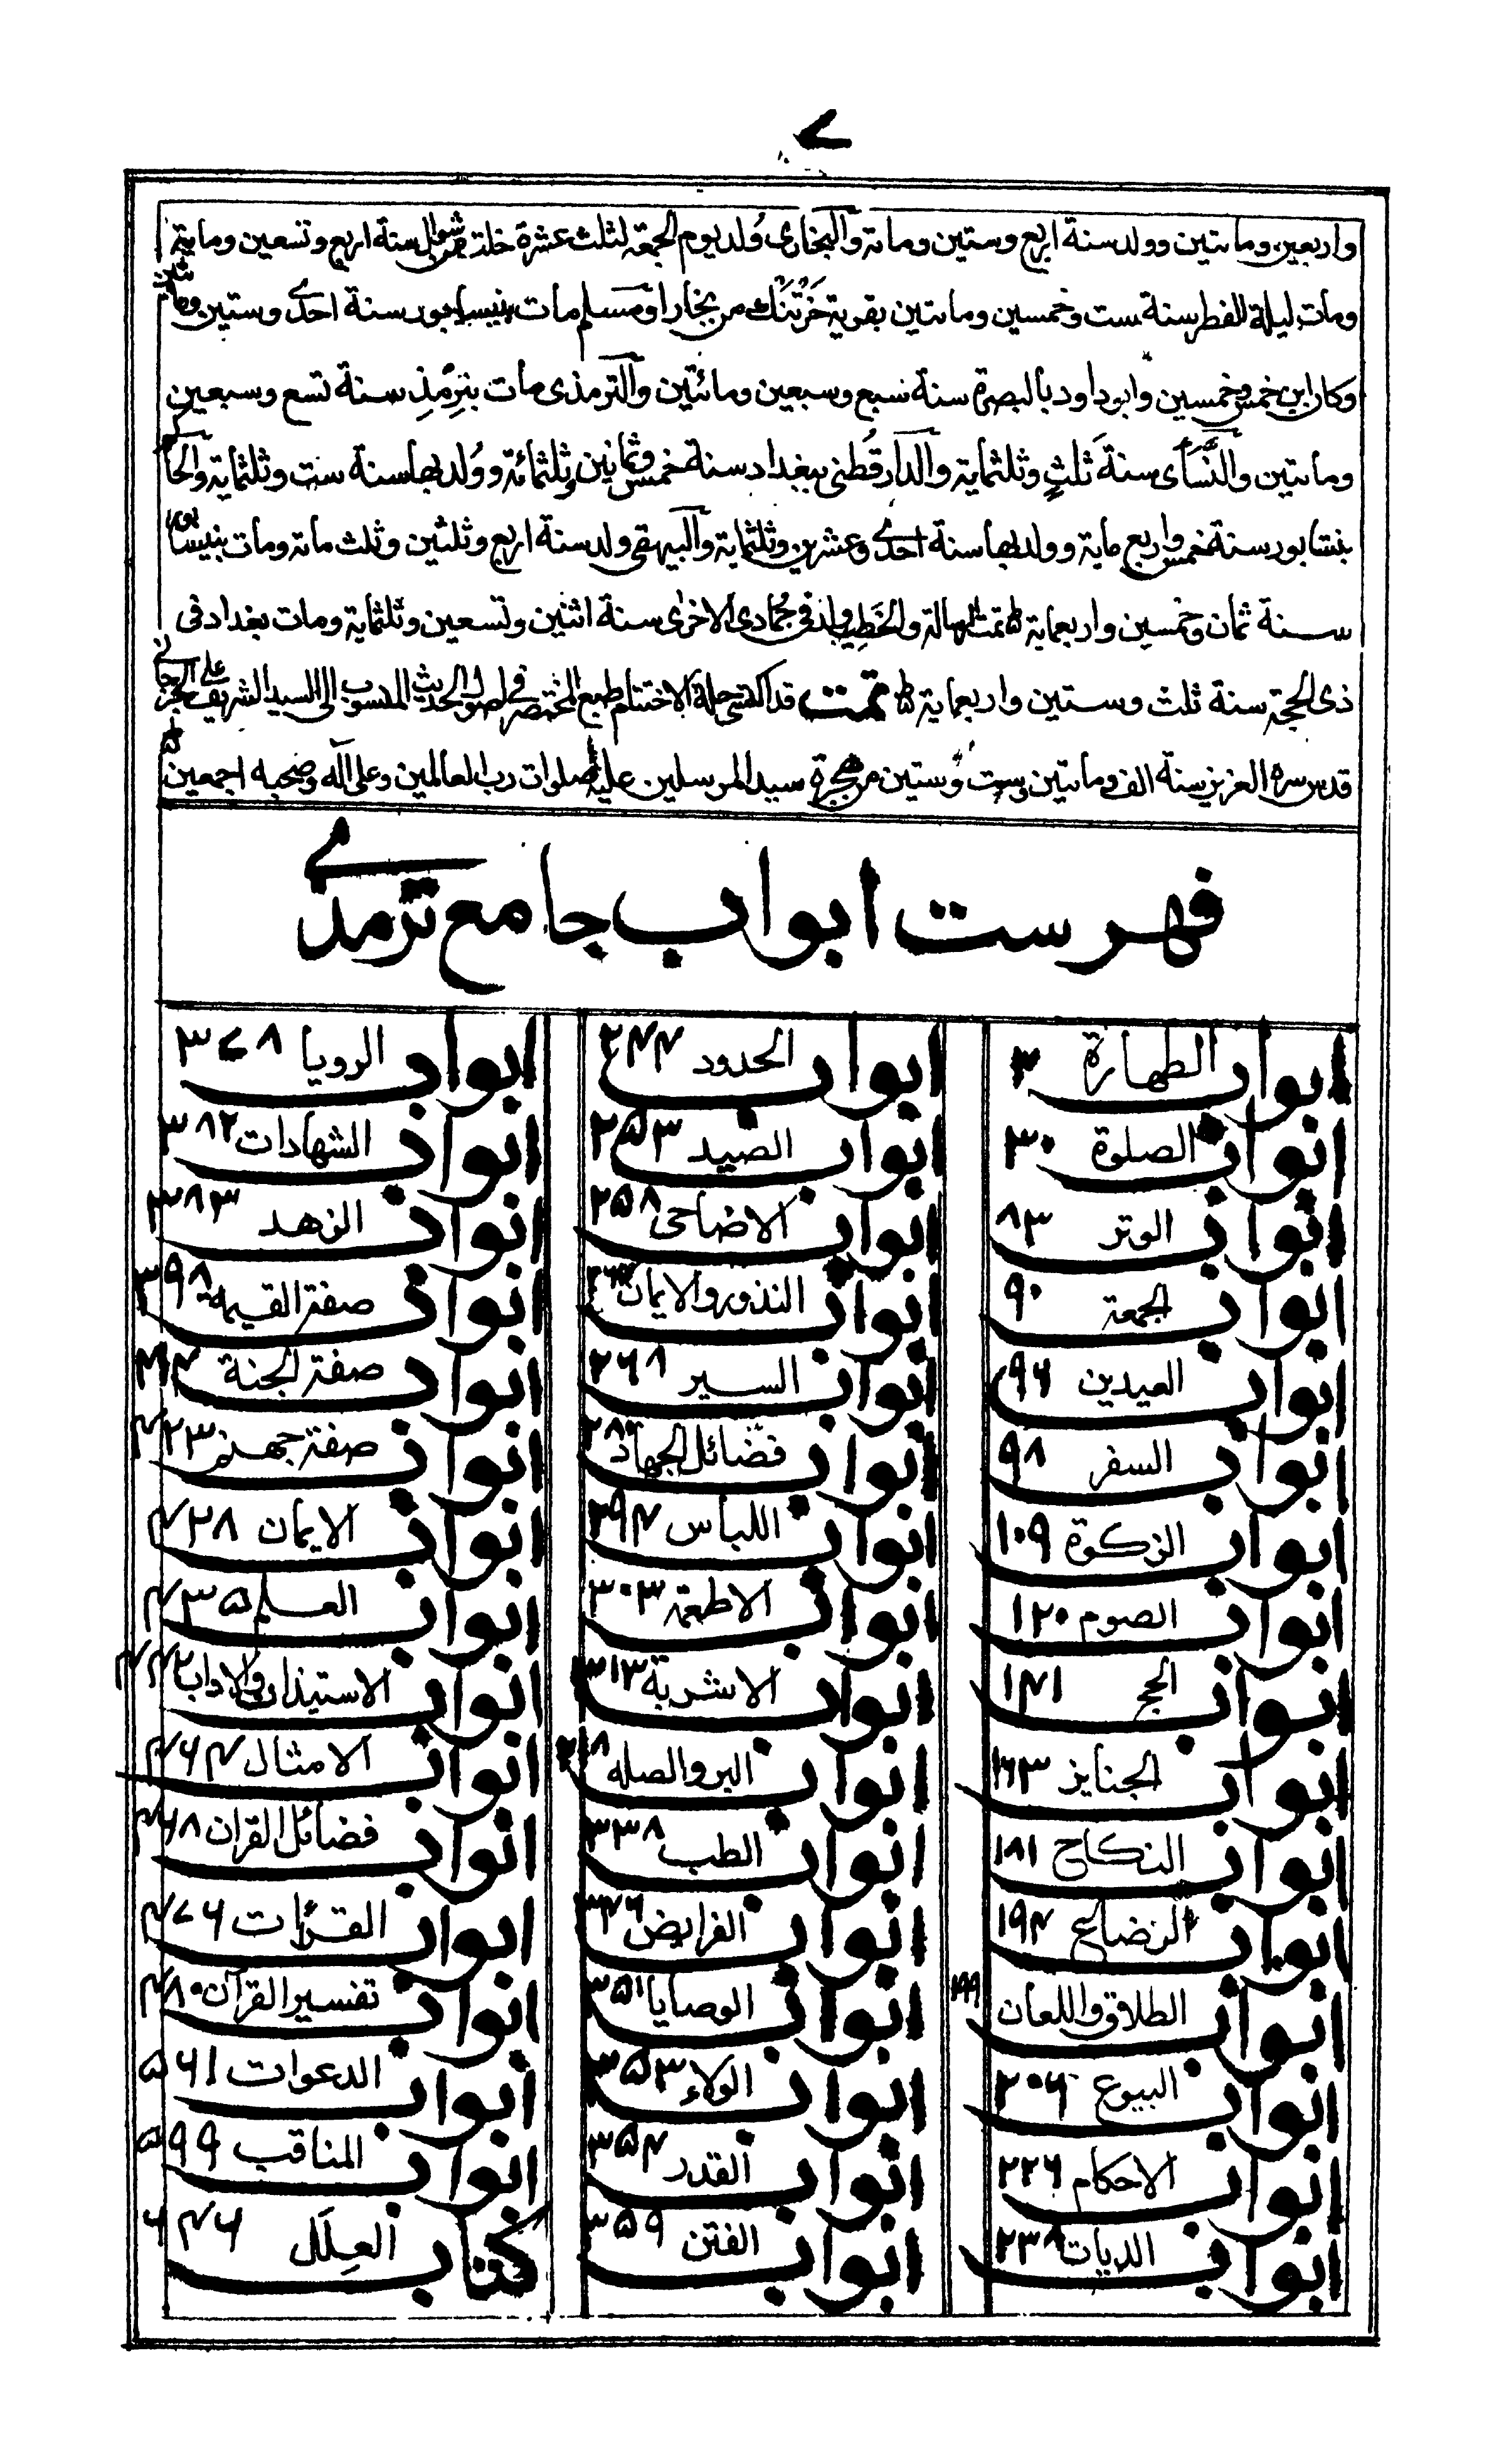 ۷
واربعين ومائتين وولد سنة اربع وستين ومائة والبخارى وُلد يوم الجمعة لثلث عشرة خلت من شوال سنة اربع وتسعين ومايته
ومات ليلة الفطر سنة ست وخمسين ومائتين بقرية خَرْتَنْك من بخارا ومسلم مات بنيسابور سنة احدے وستين ومائتين
وكان ابن خمس وخمسين وابو داود بالبصرة سنة سبع وسبعين ومائتين والترمذى مات بتِرْمِذِ سنة تسع وسبعين
ومائتين والنَّسَائى سنة ثَلثٍ وثلثماية والدارقُطنى ببغداد سنة خمس وثمانين وثلثمائة ووُلد بها سنة ست وثلثماية والحاكم
بنيشابور سنة خمس واربع ماية وولد بها سنة احدے وعشرين وثلثماية والبيهقى ولد سنة اربع وثلثين وثلث مائة ومات بنيسابور
سنة ثمان وخمسين واربعماية تمت الرسالة والخَطِيب ولد فى جُمادى الاخرى سنة اثنين وتسعين وثلثماية ومات ببغداد فى
ذى الحجة سنة ثلث وستين واربعماية تمت قد اكتسى حلة الاختتام طبع المختصر فے اصول الحديث المنسوب الى السيد الشريف على الجرجانے
قدس سره العزيز سنة الف ومائتين وست وستين من هجرة سيد المرسلين عليه صلوات رب العالمين وعلى اله وصحبه اجمعين
فهرست ابواب جامع ترمذے
ابواب الطهارة ۳
ابواب الصلوة ۳۰
ابواب الوتر ۸۳
ابواب الجمعة ۹۰
ابواب العيدين ۹۶
ابواب السفر ۹۸
ابواب الزكوة ۱۰۹
ابواب الصوم ۱۲۰
ابواب الحج ۱۴۱
ابواب الجنايز ۱۶۳
ابواب النكاح ۱۸۱
ابواب الرضاع ۱۹۴
ابواب الطلاق واللعان ۱۹۹
ابواب البيوع ۲۰۶
ابواب الاحكام ۲۲۶
ابواب الديات ۲۳۸
ابواب الحدود ۲۴۴
ابواب الصيد ۲۵۳
ابواب الاضاحى ۲۵۸
ابواب النذور والايمان
ابواب السير ۲۶۸
ابواب فضائل الجهاد
ابواب اللباس ۲۹۴
ابواب الاطعمة ۳۰۳
ابواب الاشربة ۳۱۳
ابواب البر والصله
ابواب الطب ۳۳۸
ابواب الفرايض ۳۴۶
ابواب الوصايا ۳۵۱
ابواب الولاء ۳۵۳
ابواب القدر ۳۵۴
ابواب الفتن ۳۵۹
ابواب الرويا ۳۷۸
ابواب الشهادات ۳۸۲
ابواب الزهد ۳۸۳
ابواب صفة القيمة ۳۹۸
ابواب صفة الجنة
ابواب صفة جهنم ۴۲۳
ابواب الايمان ۴۲۸
ابواب العلم ۴۳۵
ابواب الاستيذان والاداب ۴۴۲
ابواب الامثال ۴۶۴
ابواب فضائل القران ۴۶۸
ابواب القرات ۴۷۶
ابواب تفسير القرآن ۴۸۰
ابواب الدعوات ۵۶۱
ابواب المناقب ۵۹۹
كتاب العِلَل ۶۴۶